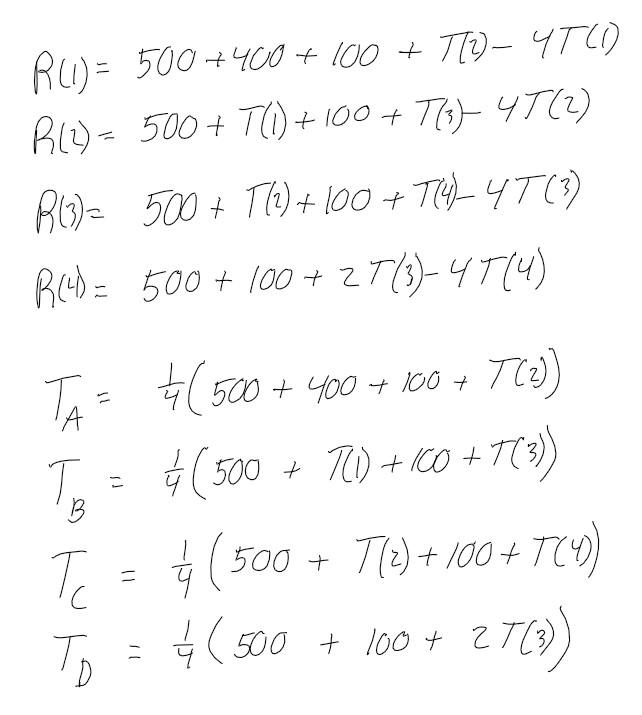 R(1) = 500 + 400 + 100 + T(2) - 4T(1)
R(2) = 500 + T(1) + 100 + T(3) - 4T(2)
R(3) = 500 + T(2) + 100 + T(4) - 4T(3)
R(4) = 500 + 100 + 2T(3) - 4T(4)
T_A = 1/4 (500 + 400 + 100 + T(2))
T_B = 1/4 (500 + T(1) + 100 + T(3))
T_C = 1/4 (500 + T(2) + 100 + T(4))
T_D = 1/4 (500 + 100 + 2T(3))